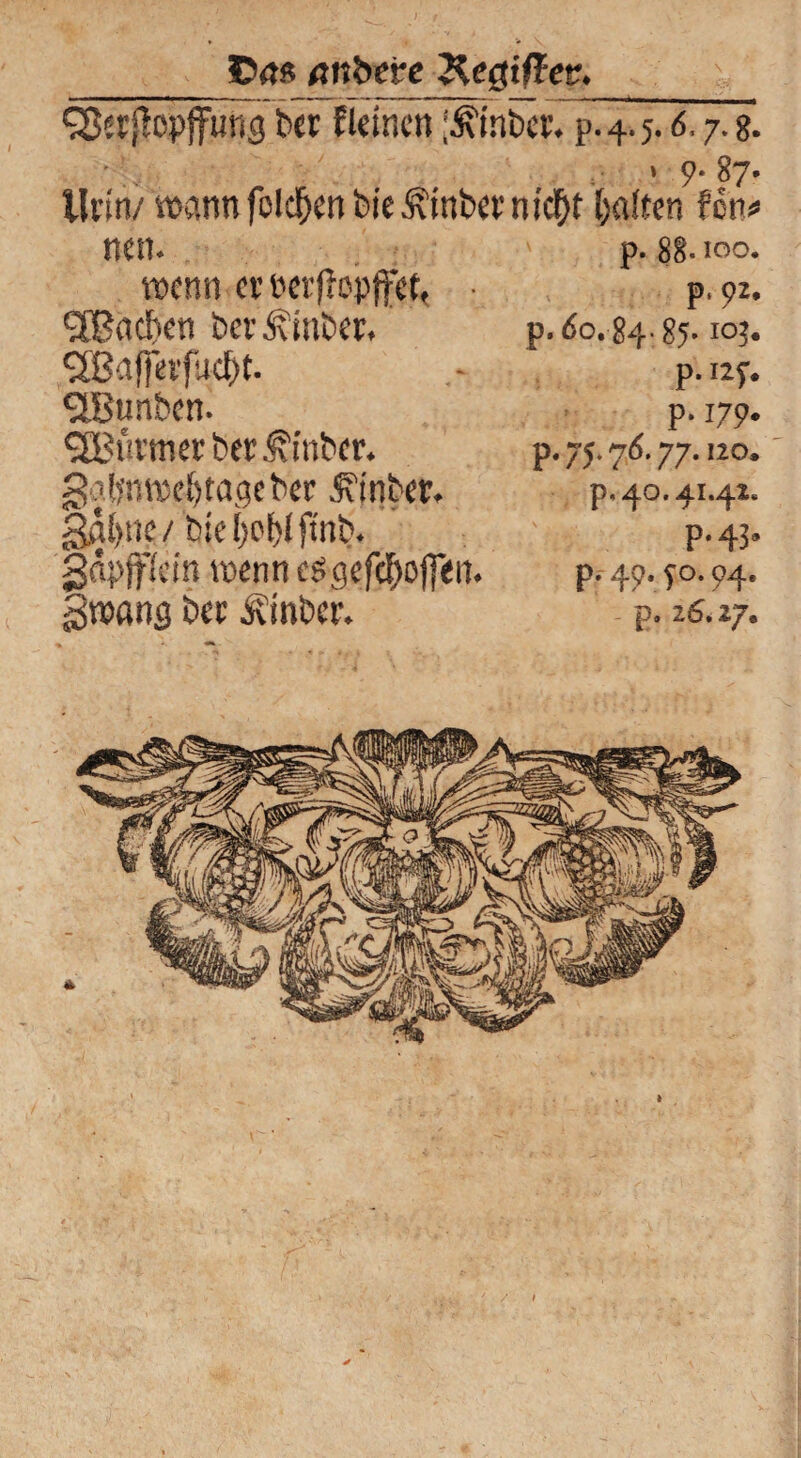 Das andere Register.
Verstopffung der kleinen Kinder. p. 4. 5. 6. 7. 8.
9. 87.
Urin/ wann solchen die Kinder nicht halten kön⸗
nen. p. 88. 100.
wenn er verstopffet. p. 92.
Wachen der Kinder. p. 60. 84. 85. 103.
Wassersucht. p. 125.
Wunden. p. 179.
Würmer der Kinder. p. 75. 76. 77. 120.
Zahnwehtage der Kinder. p. 40. 41. 42.
Zähne/ die hohl sind. p. 43.
Zäpfflein wenn es geschossen. p. 49. 50. 94.
Zwang der Kinder. p. 26. 27.